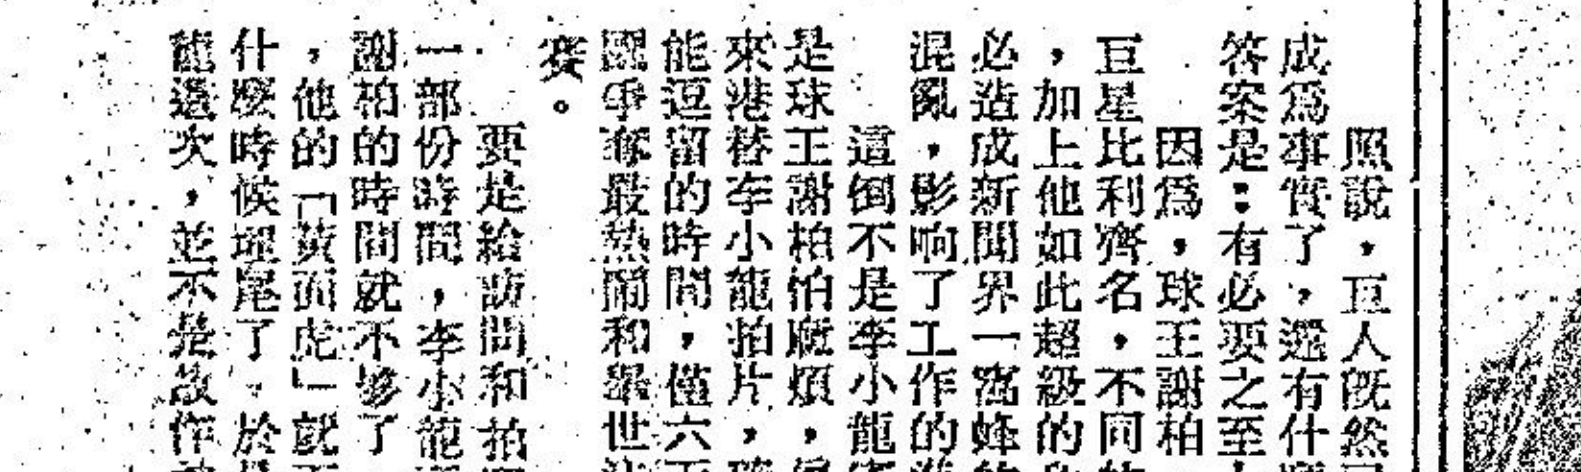 照說，亘人既然
成爲事實了，還有什
答案是：有必要之至
因爲，球王謝柏
亘星比利齊名，不同
，加上他如此超級的
必造成新聞界一窩蜂
混亂，影响了工作的
這倒不是李小龍
是球王謝柏怕厭煩，
來港替李小龍拍片，
能逗留的時間，僅六
國爭奪最熱鬧和舉世
賽。
要是給訪問和拍
一部份時間，李小龍
謝柏的時間就不够了
，他的「黃面虎」就
什麽時候埋尾了，於
龍這次，並不是故作